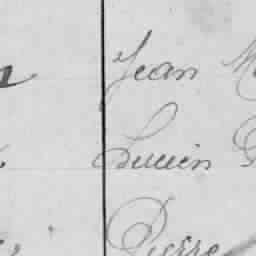 Jean
Lucien
Pierre